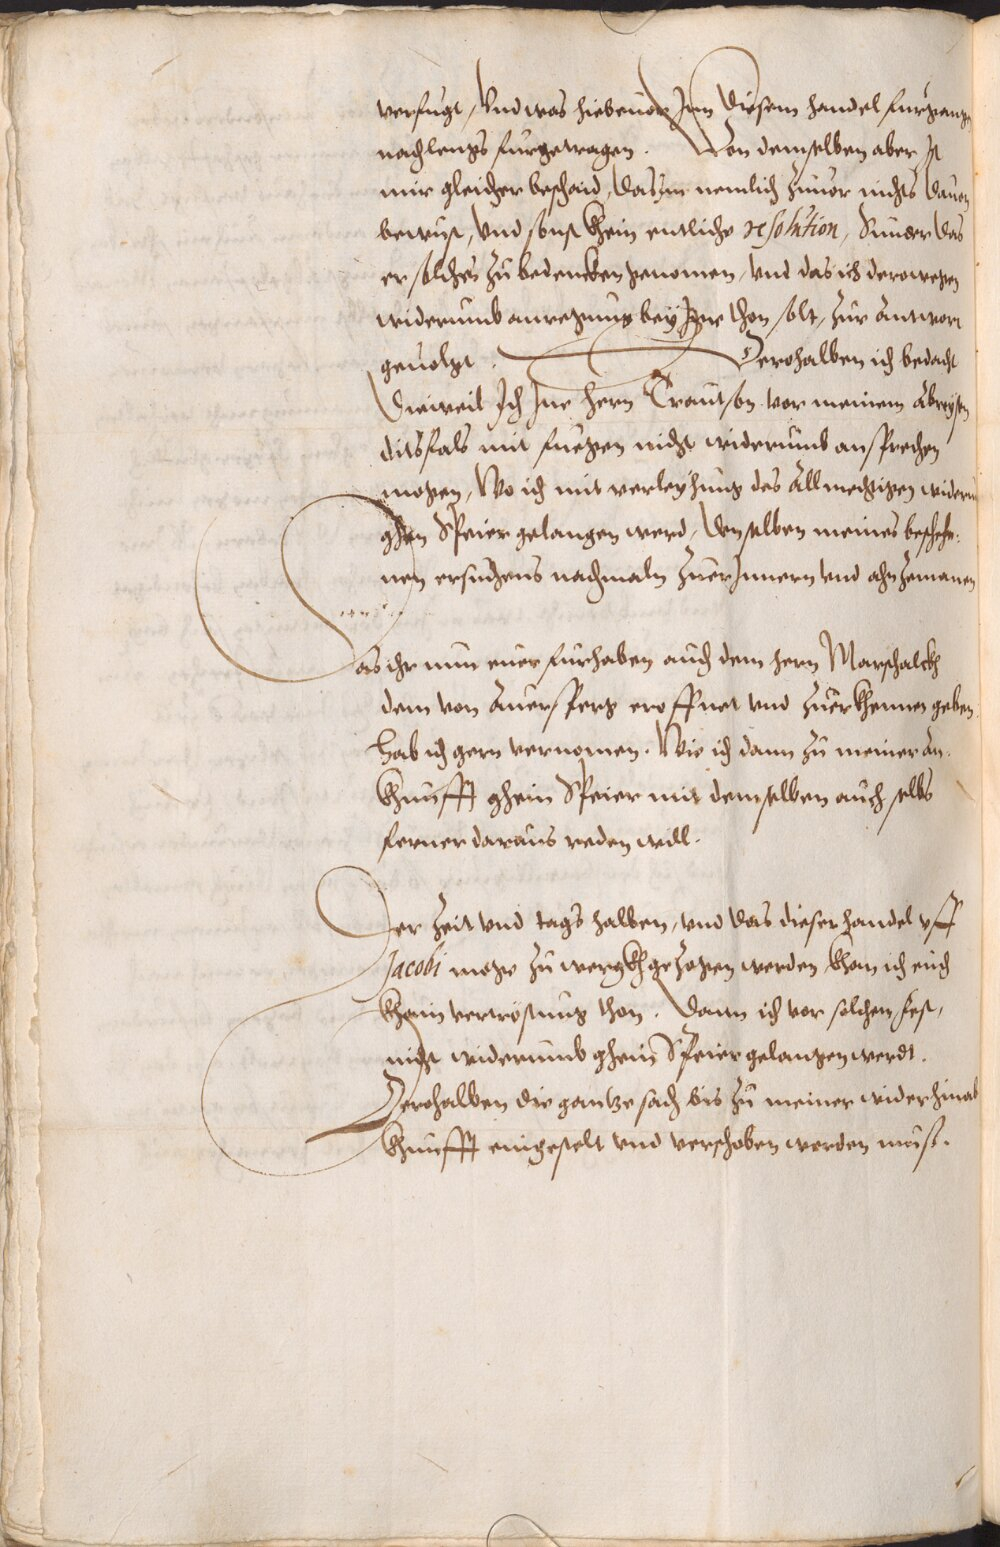 verfugt, Vnd was hieuor Inn diesem handel furgangen
nach lengs furgetragen. Von demselben aber Ist
mir gleicher beschaid, das Im nemlich zuuor nichts dauon
bewust, vnd sonst khein entliche resolution, Sunder das
er solches zu bedencken genomen, vnd das ich derowegen
widerumb anregung bey Ime thon solt, zur Antwort
geuolgt. Derohalben ich bedacht
Dieweil Ich Ine hern Trautson vor meinem Abreysen
disfals mit fuegen nicht widerumb ansprechen
mogen, Wo ich mit verleyhung des Allmechtigen widerumb
ghen Speier gelangen werd, denselben meines beschehe-
nen ersuchens nachmaln zuerInnern vnd
Das ihr nun euer furhaben auch dem hern Marschalckh
dem von Auersperg eroffnet vnd zuerkhennen geben
hab ich gern vernomen. Wie ich dann zu meiner An-
khunfft ghein Speier mit demselben auch selbs
ferner daraus reden will.
Der zeit vnd tags halben, vnd das dieser handel vff
Jacobi moge zu wergkh gezogen werden, khan ich euch
khain vertröstung thon. Dann ich vor solchem fest,
nicht widerumb ghein Speier gelangen werdt.
Derohalben die gantze sach bis zu meiner wider hinab
khunfft eingestelt vnd verschoben werden muß.